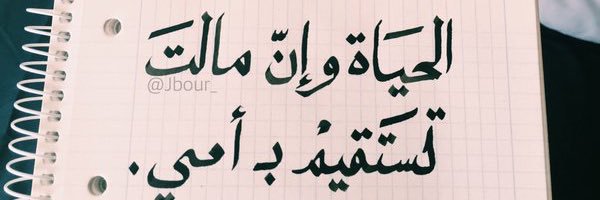 الحَيَاة وإنّ مالتَ
@Jbour_
تَستَقيمْ بـ أمي.